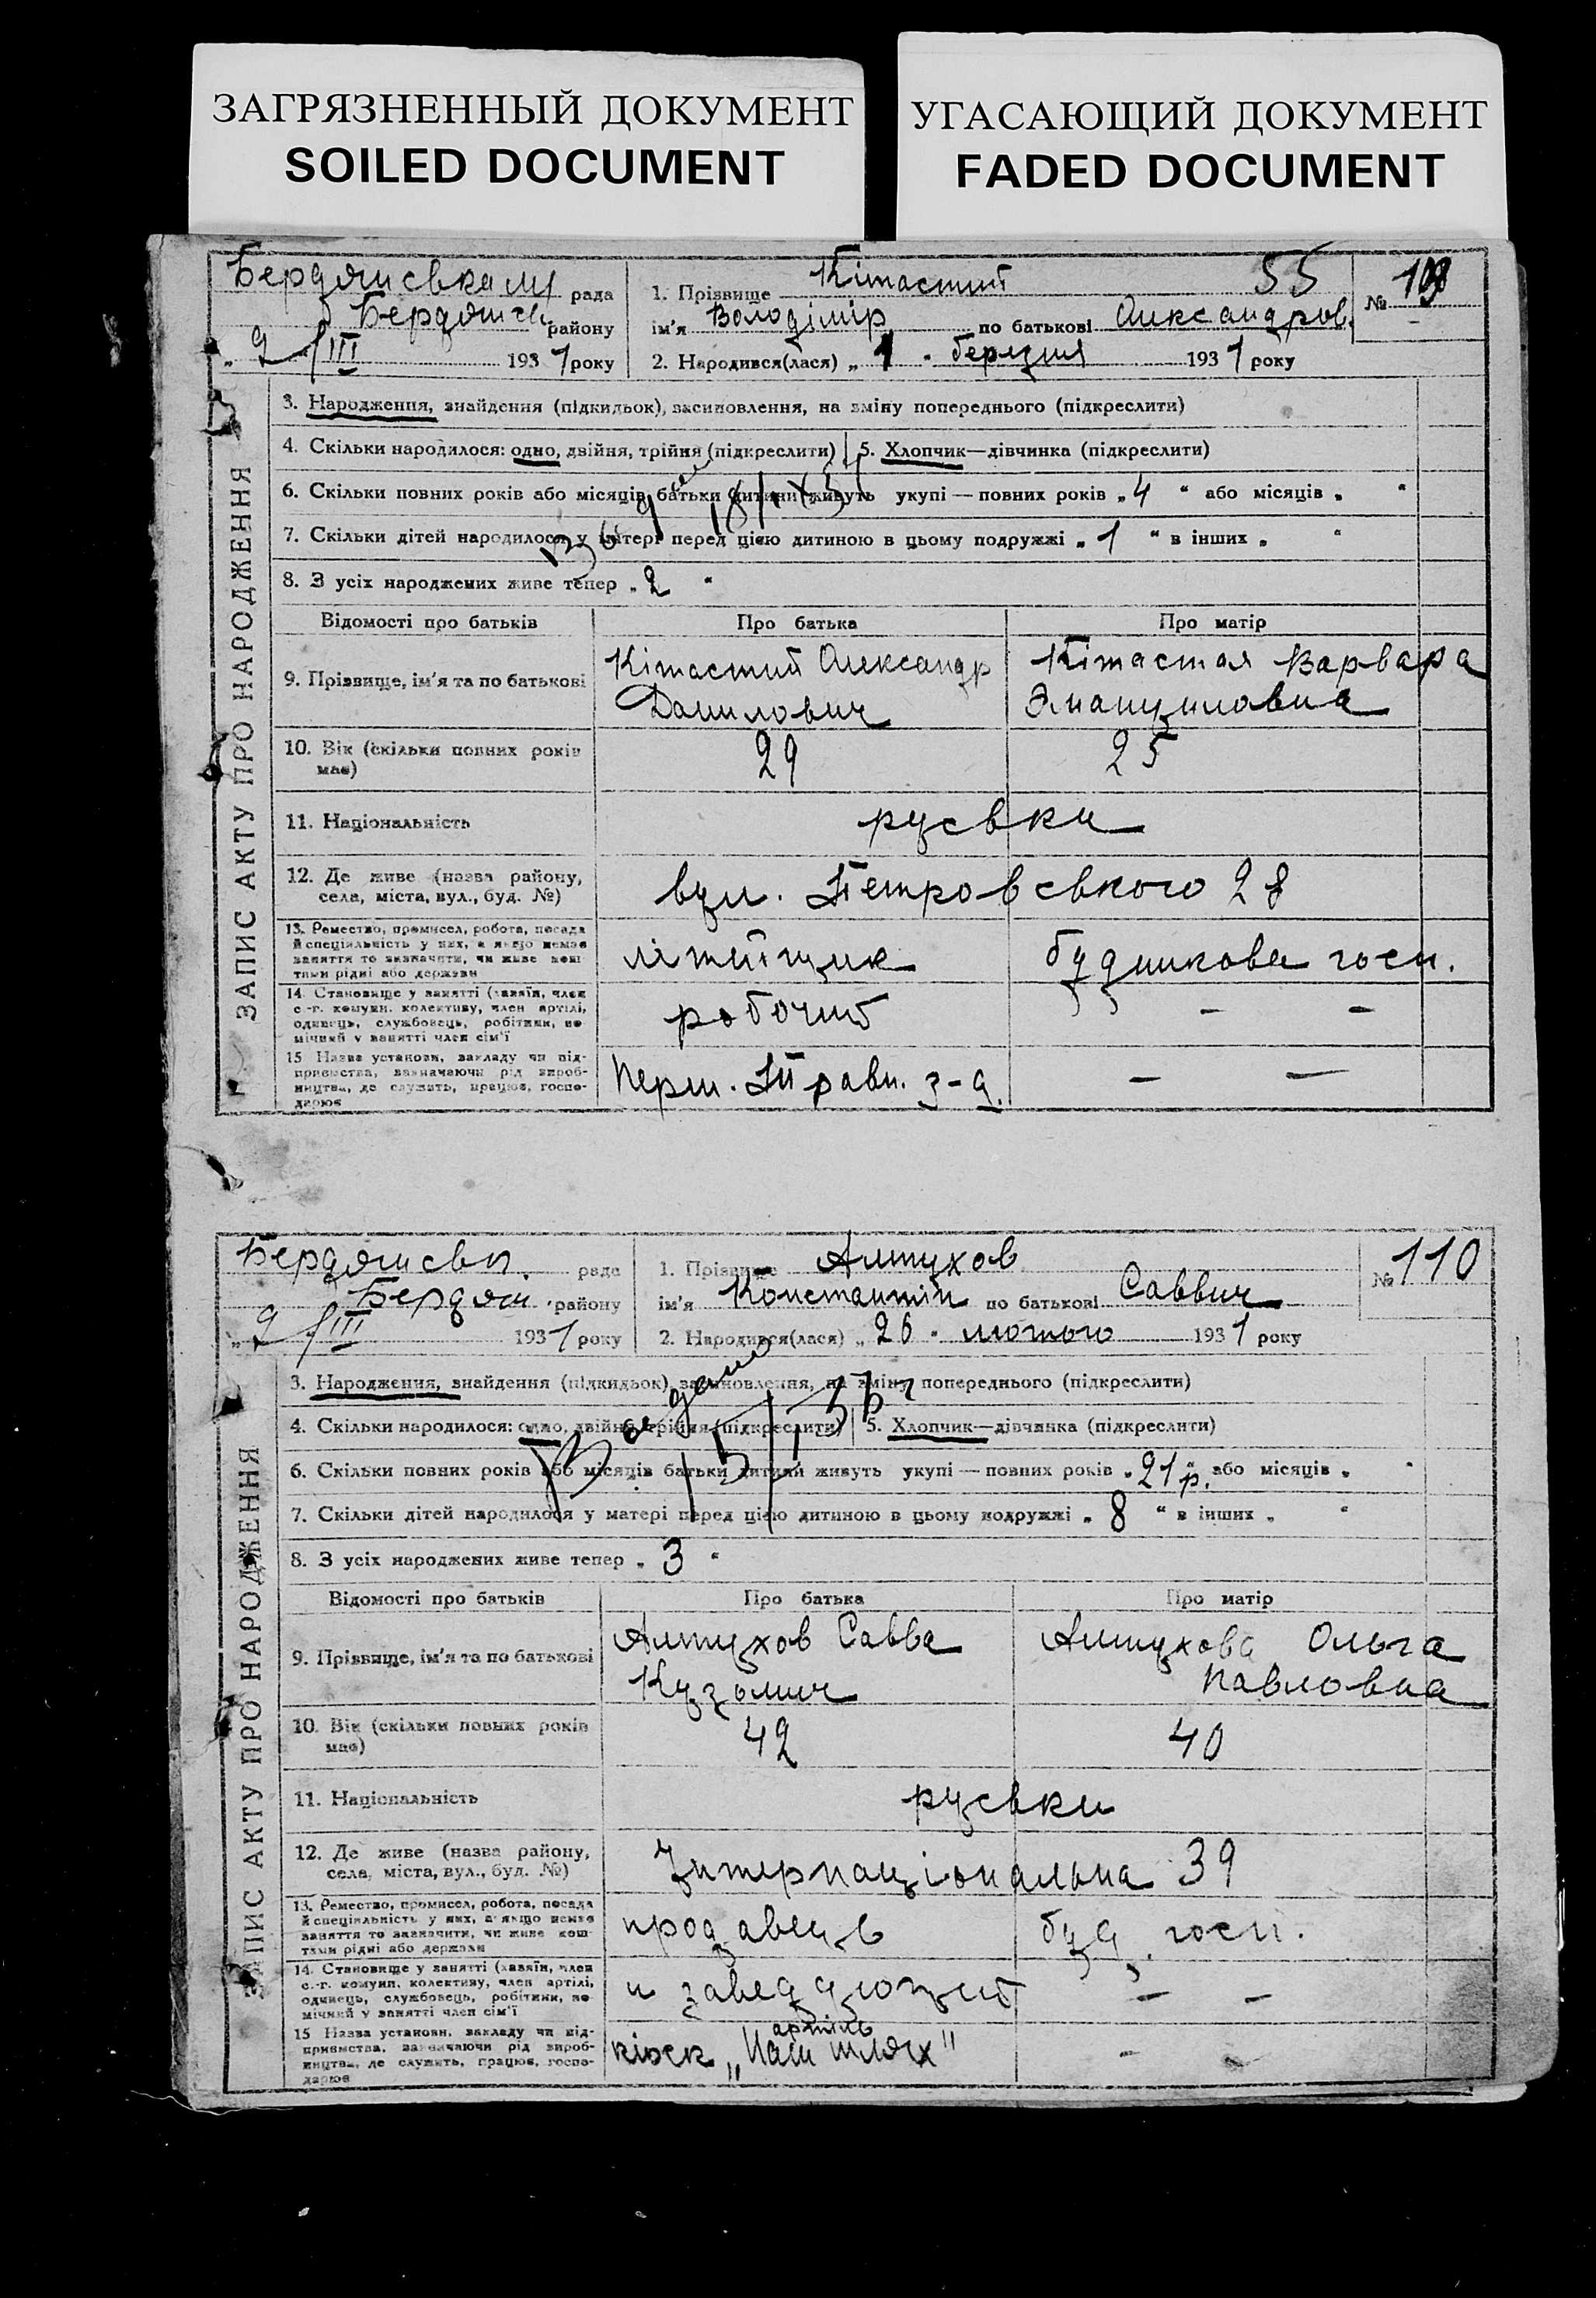 ЗАГРЯЗНЕННЫЙ ДОКУМЕНТ
SOILED DOCUMENT
УГАСАЮЩИЙ ДОКУМЕНТ
FADED DOCUMENT
рада
району
„ 2/III 1931 року
1. Прізвище Кітастий 55
ім'я Володімір по батькові Александров.
2. Народився(лася) „1" березня 1931 року
№ 109
ЗАПИС АКТУ ПРО НАРОДЖЕННЯ
3. Народження, знайдення (підкидьок), засиновлення, на зміну попереднього (підкреслити)
4. Скільки народилося: одно, двійня, трійня (підкреслити) 5. Хлопчик—дівчинка (підкреслити)
6. Скільки повних років або місяців батьки дитини живуть укупі — повних років „4" або місяців „ "
7. Скільки дітей народилося у матері перед цією дитиною в цьому подружжі „1" в інших „ "
8. З усіх народжених живе тепер „2"
Відомості про батьків Про батька Про матір
9. Прізвище, ім'я та по батькові
Кітастий Олександр
Данилович
Кітастая Варвара
Эмануиловна
10. Вік (скільки повних років
має)
29 25
11. Національність руські
12. Де живе (назва району,
села, міста, вул., буд. №)
вул. Петровського 28
13. Ремество, промисел, робота, посада
й спеціяльність у них, а якщо немає
заняття то зазначити, чи живе кош-
тами рідні або держави
літейщик
будинкова госп.
14. Становище у занятті (хазяїн, член
с.-г. комуни, колективу, член артілі,
одинець, службовець, робітник, по-
мічний у занятті член сім'ї
робочий — —
15 Назва установи, закладу чи під-
приємства, зазначаючи рід вироб-
ництва, де служить, працює, госпо-
дарює
Перш. Травн. з-д. — —
Бердянськ. рада
Бердян. району
„ 2/III 1931 року
1. Прізвище Алтухов
ім'я Константін по батькові Саввич
2. Народився(лася) „26" лютого 1931 року
№ 110
ЗАПИС АКТУ ПРО НАРОДЖЕННЯ
3. Народження, знайдення (підкидьок), засиновлення, на зміну попереднього (підкреслити)
4. Скільки народилося: одно, двійня, трійня (підкреслити) 5. Хлопчик—дівчинка (підкреслити)
6. Скільки повних років або місяців батьки дитини живуть укупі — повних років „21 р." або місяців „ "
7. Скільки дітей народилося у матері перед цією дитиною в цьому подружжі „8" в інших „ "
8. З усіх народжених живе тепер „3"
Відомості про батьків Про батька Про матір
9. Прізвище, ім'я та по батькові
Алтухов Савва
Кузьмич
Алтухова Ольга
Павловна
10. Вік (скільки повних років
має)
42 40
11. Національність руські
12. Де живе (назва району,
села, міста, вул., буд. №)
Інтернаціональна 39
13. Ремество, промисел, робота, посада
й спеціяльність у них, а якщо немає
заняття то зазначити, чи живе кош-
тами рідні або держави
продавець
буд. госп.
14. Становище у занятті (хазяїн, член
с.-г. комуни, колективу, член артілі,
одинець, службовець, робітник, по-
мічний у занятті член сім'ї
и заведдующий — —
15 Назва установи, закладу чи під-
приємства, зазначаючи рід вироб-
ництва, де служить, працює, госпо-
дарює
артіль
кіоск „Наш шлях" — —